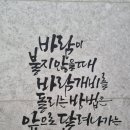 바람이
불지 않을 때
바람개비를
돌리는 방법은
앞으로 달려나가는